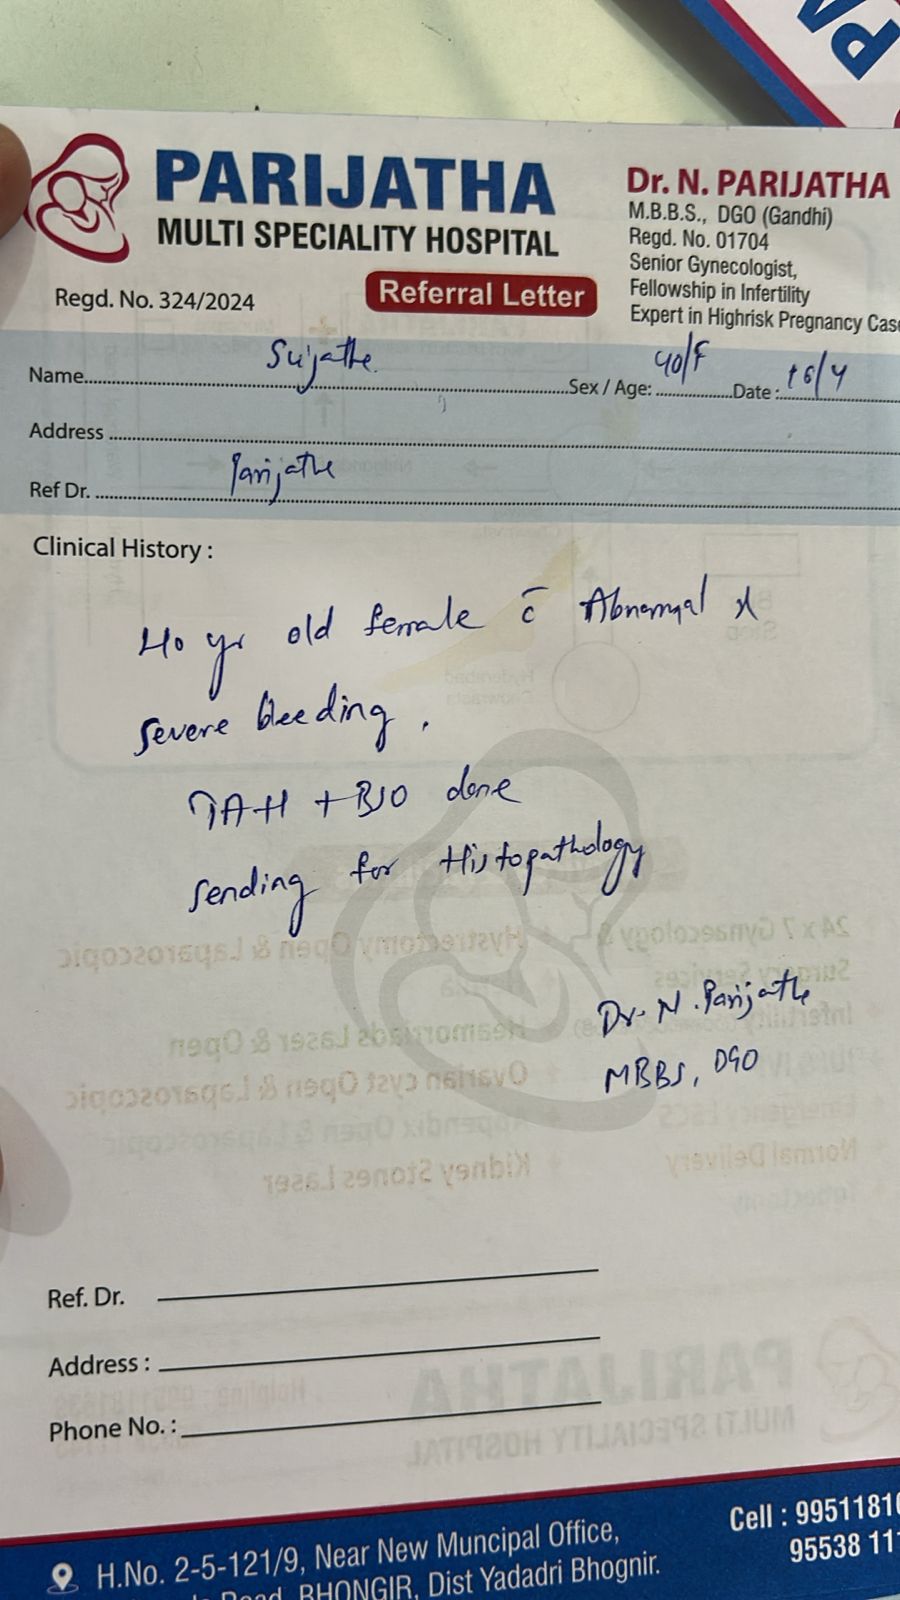 PA
PARIJATHA
MULTI SPECIALITY HOSPITAL
Regd. No. 324/2024
Referral Letter
Dr. N. PARIJATHA
M.B.B.S., DGO (Gandhi)
Regd. No. 01704
Senior Gynecologist,
Fellowship in Infertility
Expert in Highrisk Pregnancy Case
Name Sujathe. Sex / Age: 40/F Date : 16/4
Address
Ref Dr. Parijathe
Clinical History :
40 yr old female c̄ Abnormal
severe bleeding.
TAH + BSO done
sending for Histopathology
Dr. N. Parijathe
MBBS, DGO
Ref. Dr.
Address :
Phone No. :
H.No. 2-5-121/9, Near New Muncipal Office,
Road, BHONGIR, Dist Yadadri Bhognir.
Cell : 99511810
95538 11